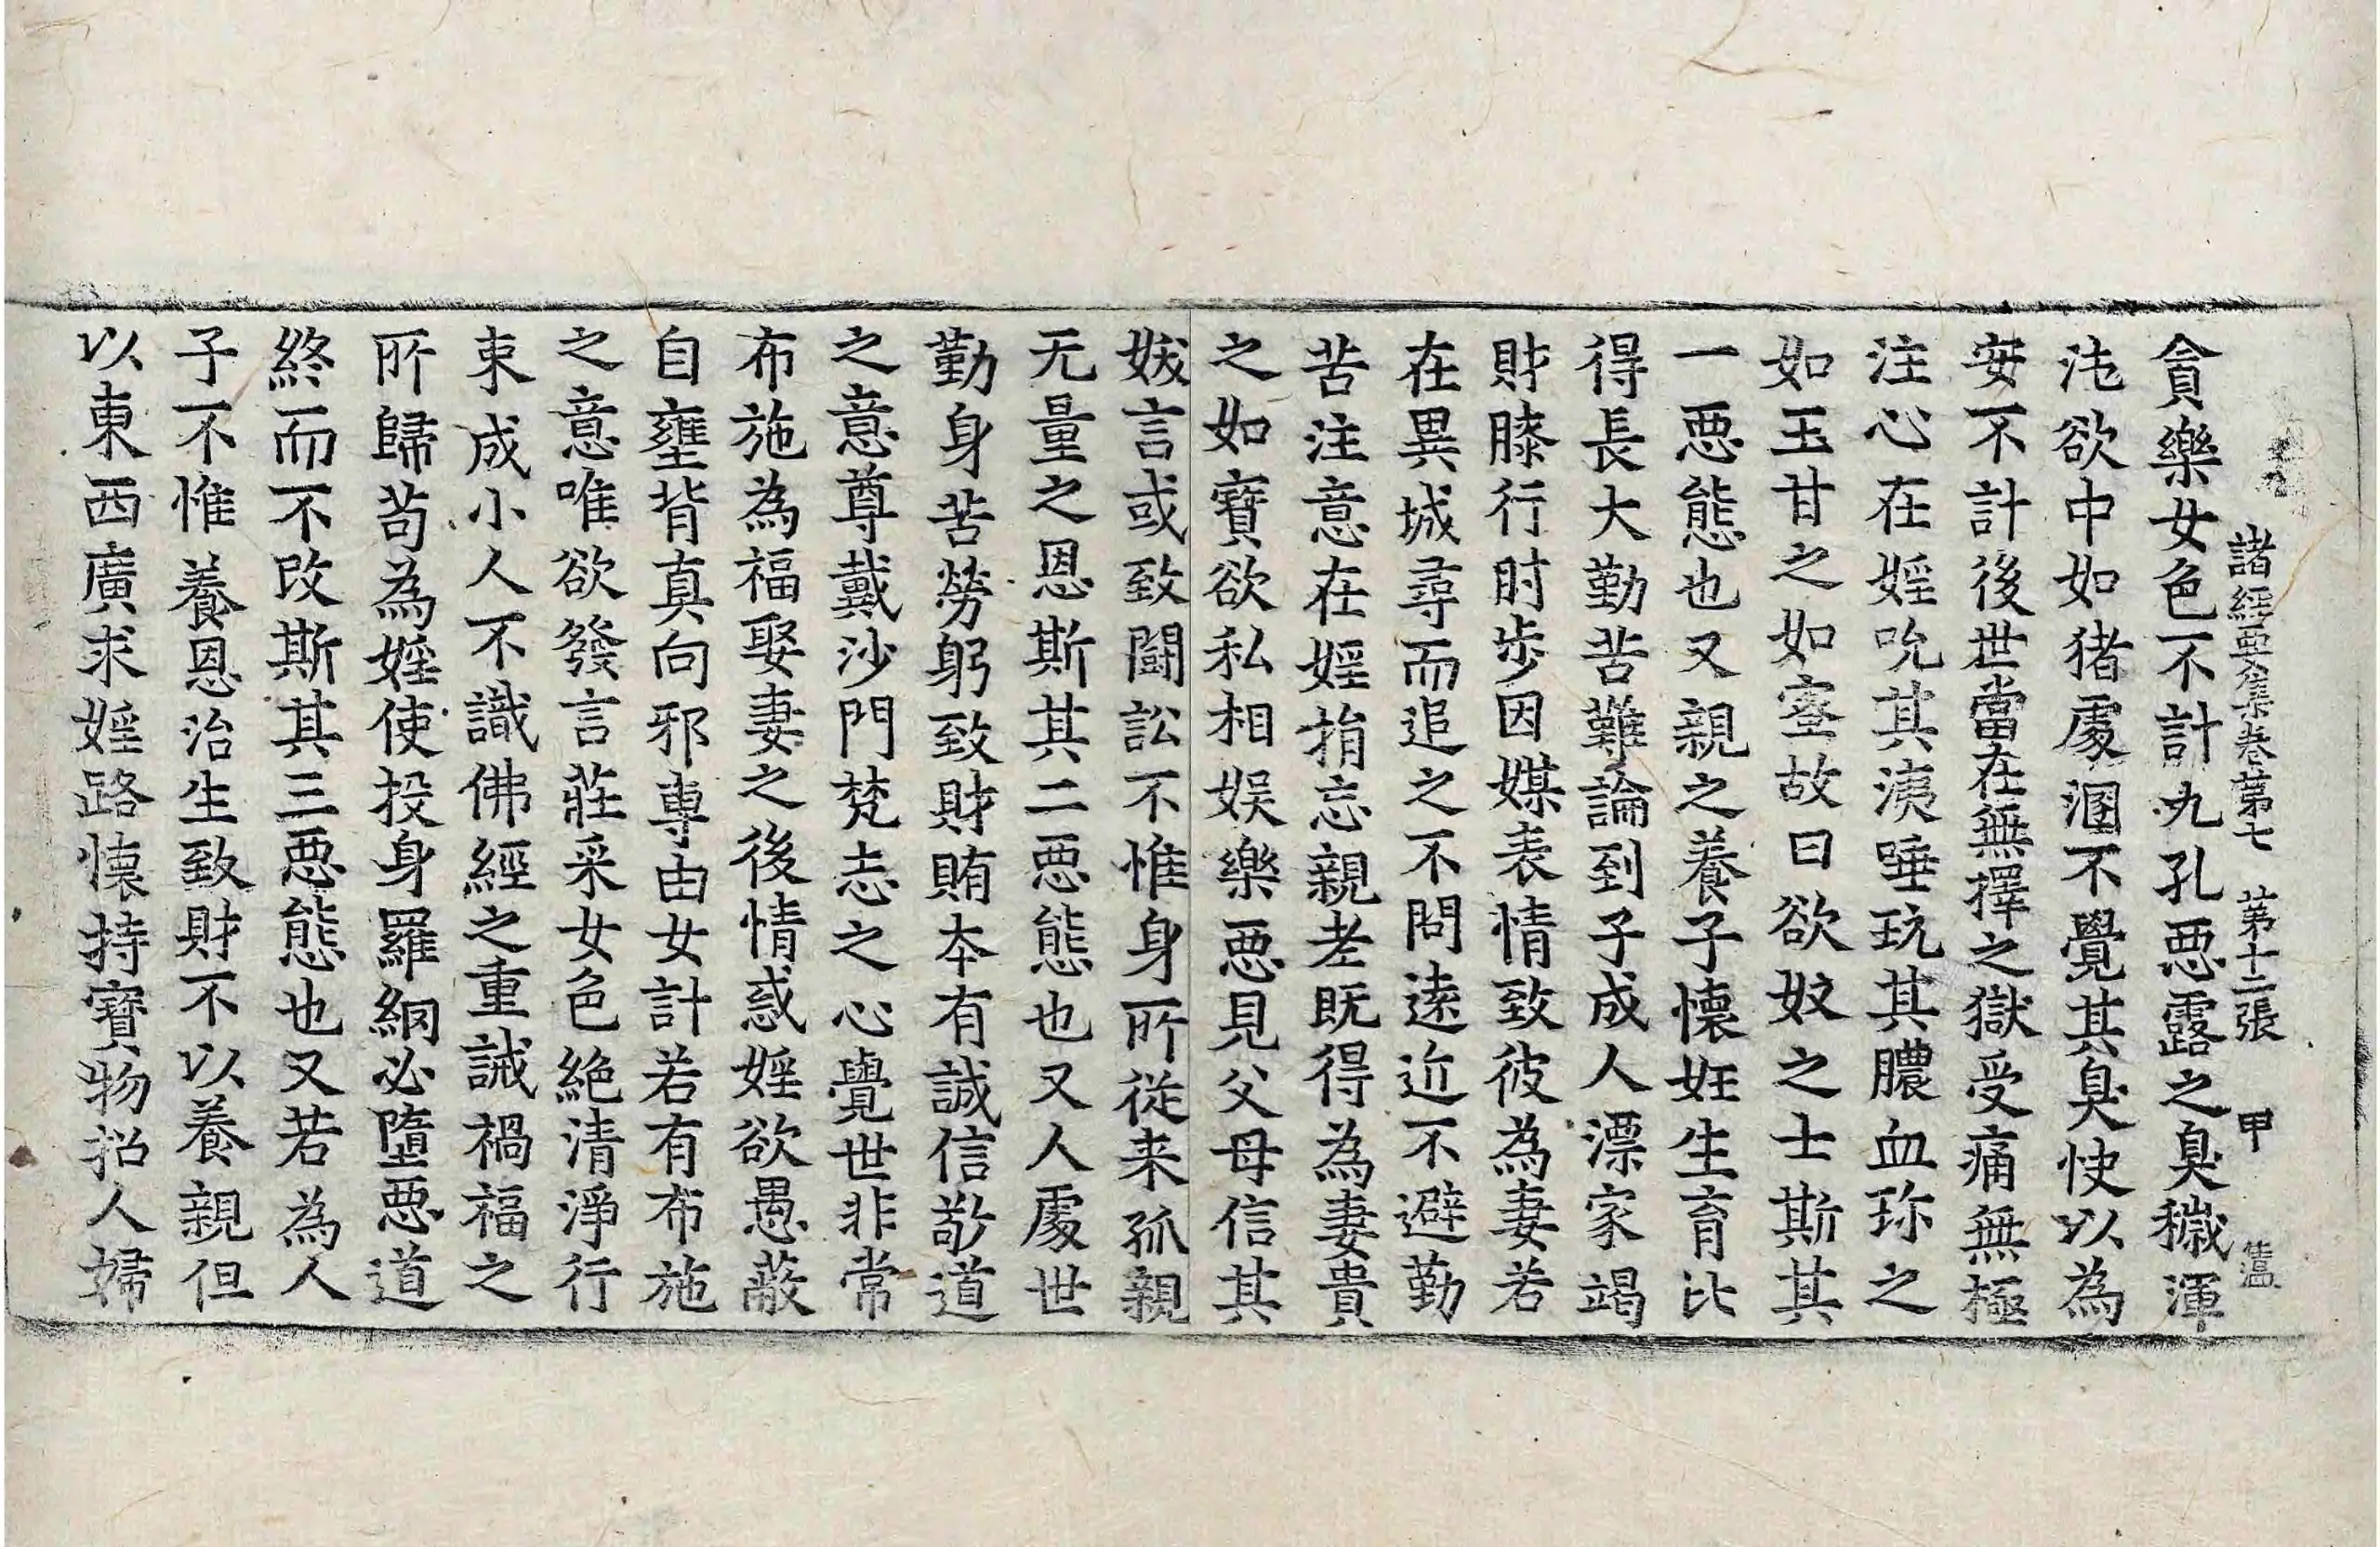 諸經要集卷第七 第十二張 甲
貪樂女色不計九孔惡露之臭穢渾
沌欲中如猪處溷不覺其臭快以為
安不計後世當在無擇之獄受痛無極
注心在婬吮其洟唾玩其膿血珎之
如玉甘之如蜜故曰欲奴之士斯其
一惡態也又親之養子懷妊生育比
得長大勤苦難論到子成人漂家竭
財膝行肘步因媒表情致彼為妻若
在異城尋而追之不問遠近不避勤
苦注意在婬捐忘親老既得為妻貴
之如寶欲私相娱樂惡見父母信其
妭言或致鬪訟不惟身所從来孤親
无量之恩斯其二惡態也又人處世
勤身苦勞躬致財賄本有誠信敬道
之意尊戴沙門梵志之心覺世非常
布施為福娶妻之後情惑婬欲愚蔽
自壅背真向邪專由女計若有布施
之意唯欲發言莊采女色絶清淨行
束成小人不識佛經之重誡禍福之
所歸苟為婬使投身羅網必墮惡道
終而不改斯其三惡態也又若為人
子不惟養恩治生致財不以養親但
以東西廣求婬路懷持寶物招人婦